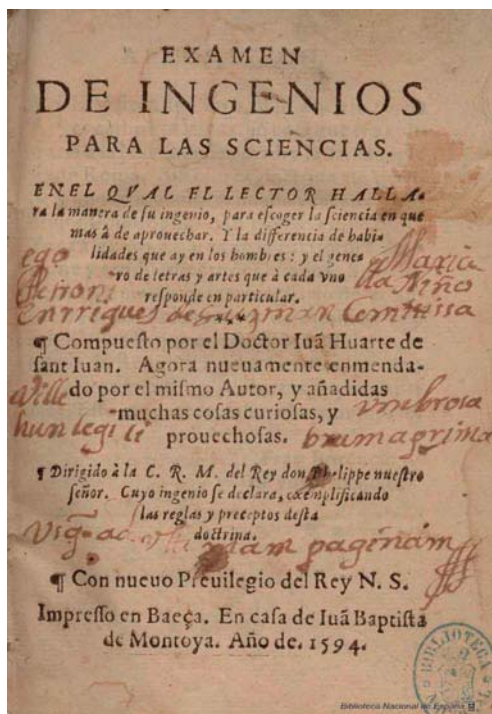 EXAMEN
DE INGENIOS
PARA LAS SCIENCIAS.
EN EL QVAL EL LECTOR HALLA-
ra la manera de su ingenio, para escoger la sciencia en que
mas â de aprouechar. Y la differencia de habi-
lidades que ay en los hombres: y el gene-
ro de letras y artes que à cada vno
responde en particular.
ego Maria
Petroni la Niño
Enrriques de Guzman Comitissa
¶ Compuesto por el Doctor Iuã Huarte de
sant Iuan. Agora nueuamente enmenda-
do por el mismo Autor, y añadidas
muchas cosas curiosas, y
prouechosas.
Ville vmbrosa
hun legi li
¶ Dirigido à la C. R. M. del Rey don Phelippe nuestro
señor. Cuyo ingenio se declara, exemplificando
las reglas y preceptos desta
doctrina.
paginam
¶ Con nueuo Preuilegio del Rey N. S.
Impresso en Baeça. En casa de Iuã Baptista
de Montoya. Año de. 1594.
BIBLIOTECA
Biblioteca Nacional de España